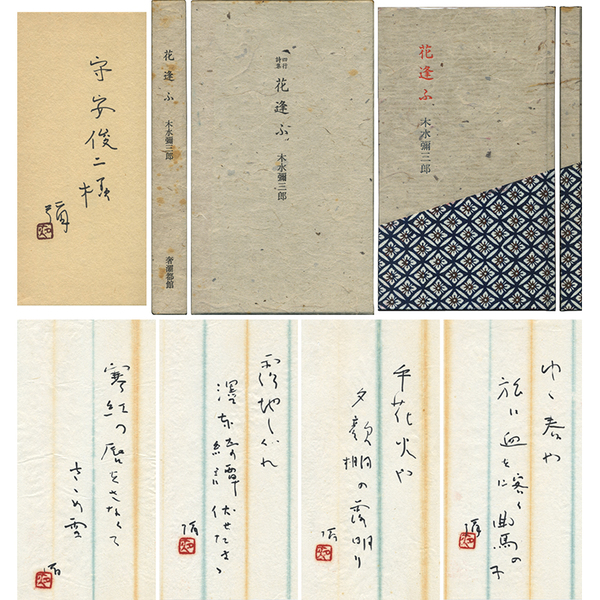 守安俊二様
彌
花逢ふ 木水彌三郎 奢灞都館
四行詩集 花逢ふ 木水彌三郎
花逢ふ 木水彌三郎
ゆく春や
旅に血を喀く曲馬の子
彌
手花火や
夕顔棚の薄明り
彌
しぐれ
濹東綺譚
彌
寒紅の唇をさなくて
さゝめ雪
彌